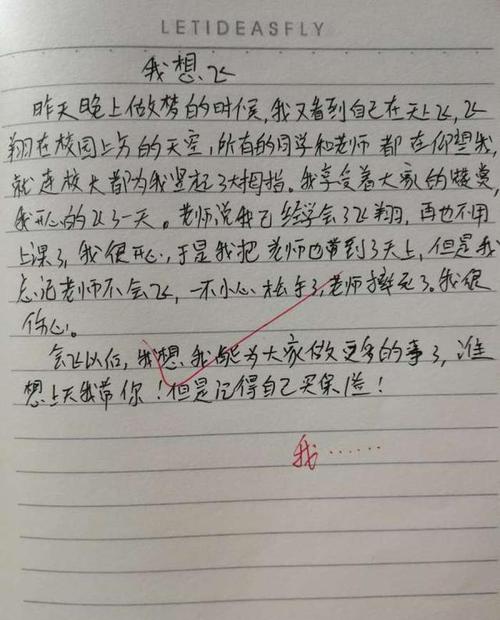 LETIDEASFLY
我想飞
昨天晚上做梦的时候,我又看到自己在天上飞,飞
翔在校园上方的天空,所有的同学和老师都在仰望我,
就连校长都为我竖起了大拇指。我享受着大家的赞赏,
我开心的飞了一天。老师说我已经学会了飞翔,再也不用
上课了,我很开心,于是我把老师也带到了天上,但是我
忘记老师不会飞,一不小心松手了,老师摔死了。我很
伤心。
会飞以后,我想我能为大家做更多的事了,谁
想上天我带你!但是记得自己买保险!
我……